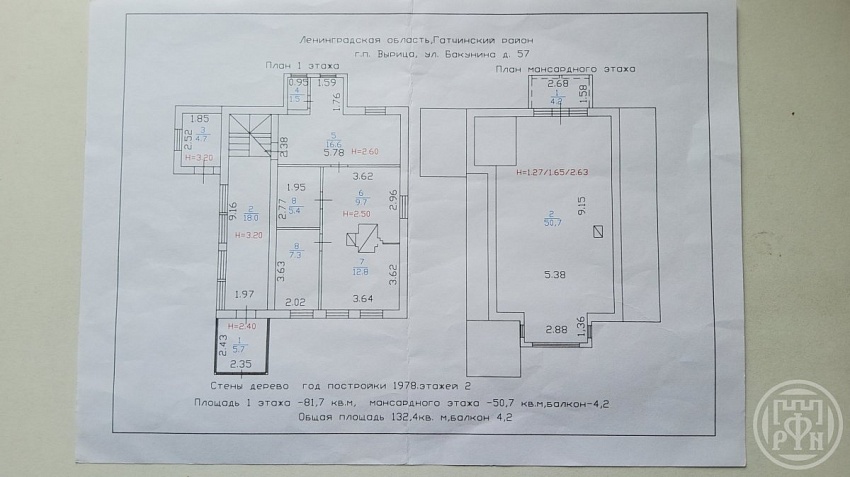 Ленинградская область,Гатчинский район
г.п. Вырица, ул. Бакунина д. 57
План 1 этажа
План мансардного этажа
0.95
1.59
4
1.5
1.76
1.85
3
4.7
2.52
H=3.20
2.38
5
16.6
5.78
H=2.60
9.16
2
18.0
H=3.20
1.97
1.95
8
5.4
2.77
3.62
6
9.7
H=2.50
2.96
8
7.3
3.63
2.02
7
12.8
3.62
3.64
H=2.40
1
5.7
2.43
2.35
2.68
1
4.2
1.58
H=1.27/1.65/2.63
2
50,7
9.15
5.38
2.88
1.36
Стены дерево год постройки 1978.этажей 2
Площадь 1 этажа -81,7 кв.м, мансардного этажа -50,7 кв.м,балкон-4,2
Общая площадь 132,4кв. м,балкон 4,2
РФN